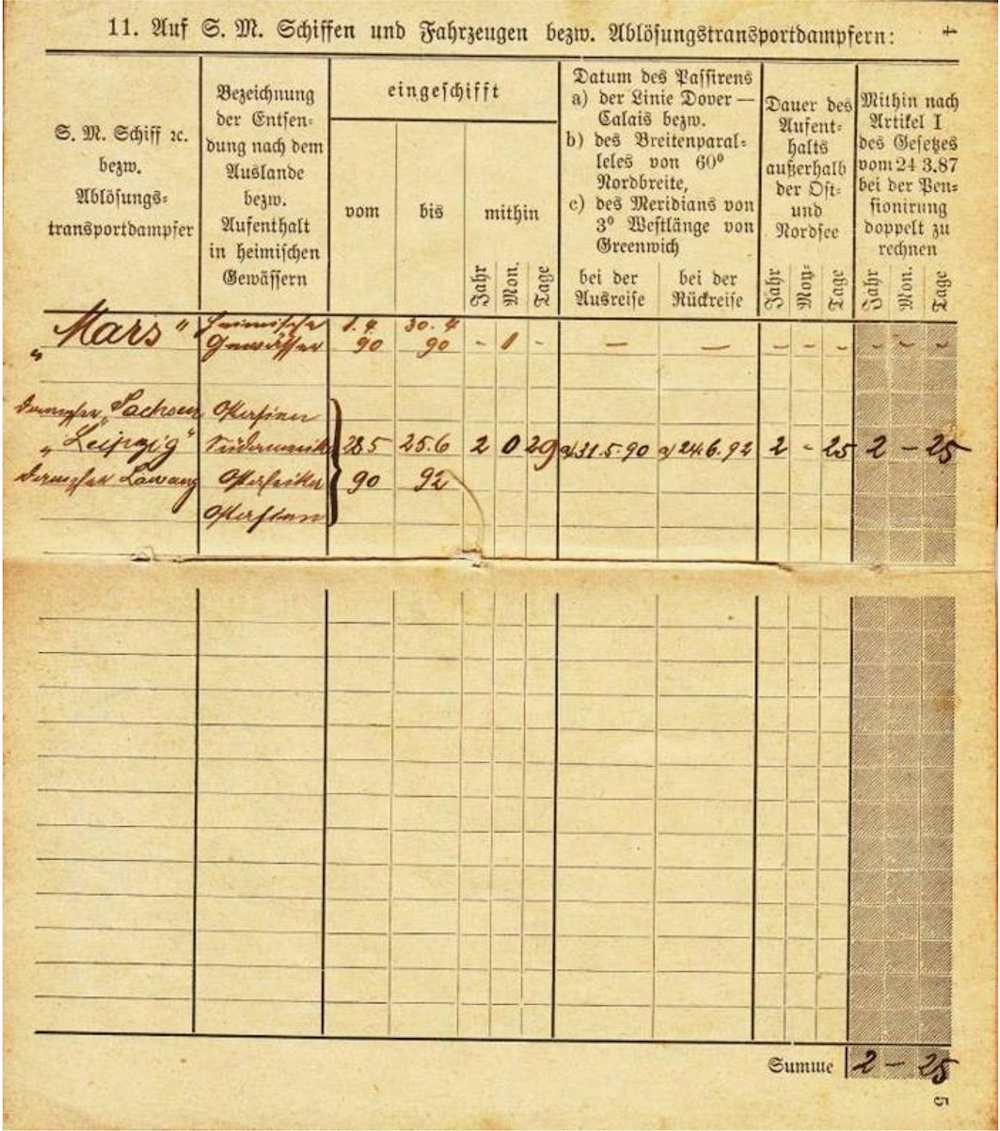 11. Auf S. M. Schiffen und Fahrzeugen bezw. Ablösungstransportdampfern:
4
S. M. Schiff ꝛc.
bezw.
Ablösungs-
transportdampfer
Bezeichnung
der Entsen-
dung nach dem
Auslande
bezw.
Aufenthalt
in heimischen
Gewässern
eingeschifft
vom
bis
mithin
Jahr
Mon.
Tage
Datum des Passirens
a) der Linie Dover —
Calais bezw.
b) des Breitenparal-
leles von 60°
Nordbreite,
c) des Meridians von
3° Westlänge von
Greenwich
bei der
Ausreise
bei der
Rückreise
Dauer des
Aufent-
halts
außerhalb
der Ost-
und
Nordsee
Jahr
Mon.
Tage
Mithin nach
Artikel I
des Gesetzes
vom 24 3.87
bei der Pen-
sionirung
doppelt zu
rechnen
Jahr
Mon.
Tage
„Mars" heimische 1.4. 30.4
Gewässer 90 90 - 1 - — — - - - - - -
Dampfer „Sachsen" Ostasien
„Leipzig" Südamerika 28 5 25.6 2 0 29 a/31.5.90 a/24.6.92 2 - 25 2 - 25
Dampfer Lawang Ostafrika 90 92
Ostasien
Summe 2 - 25
5